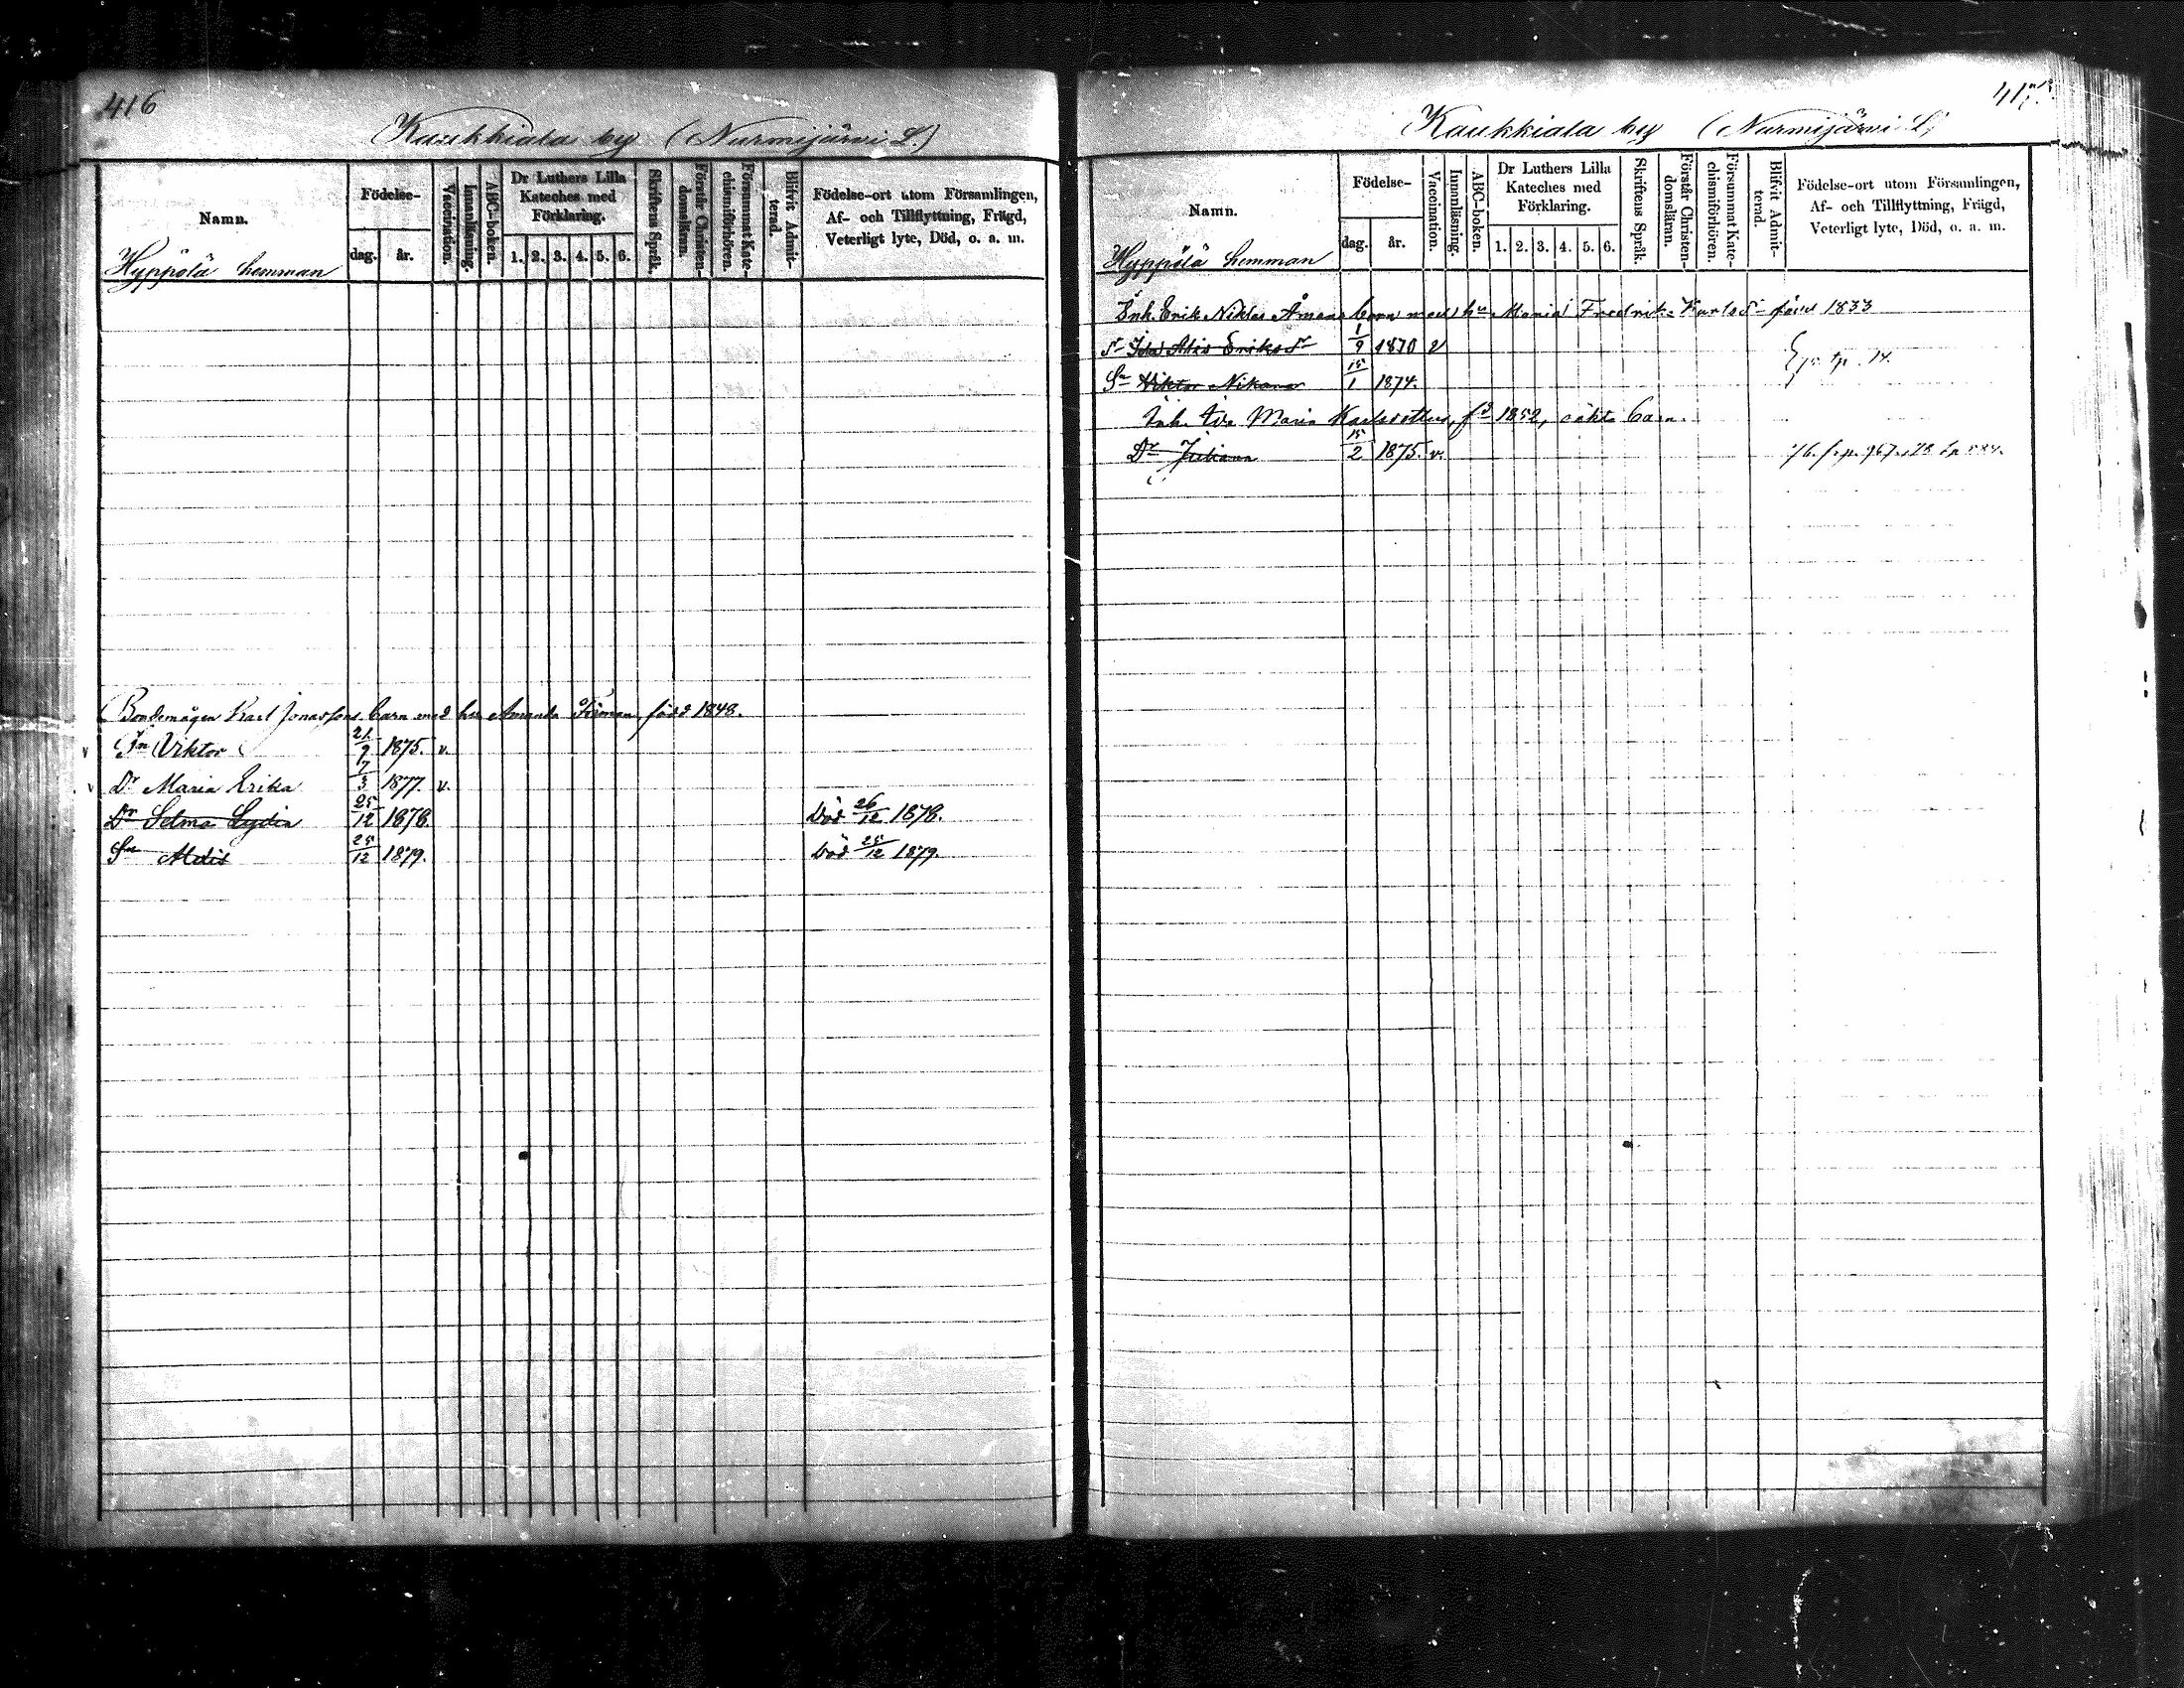 416
Kaukkiala by (Nurmijärvi L.)
Namn.
Födelse-
dag.
år.
Vaccination.
Innanläsning.
ABC-boken.
Dr Luthers Lilla Kateches med Förklaring.
1. 2. 3. 4. 5. 6.
Skriftens Språk.
Förstår Christendomsläran.
Försummat Kate-chismiförhören.
Blifvit Admit-terad.
Födelse-ort utom Församlingen,
Af- och Tillflyttning, Frägd,
Veterligt lyte, Död, o. a. m.
Hyppölä hemman
Bondemågen Karl Jonassons barn med hu Amanda född 1848.
v Sn Viktor 21/9 1875. v.
v Dr Maria Erika 7/3 1877. v.
Dr Selma Lydia 25/12 1878. Död 26/12 1878.
Sn 25/12 1879. Död 25/12 1879.
417
Kaukkiala by (Nurmijärvi L.)
Namn.
Födelse-
dag.
år.
Vaccination.
Innanläsning.
ABC-boken.
Dr Luthers Lilla Kateches med Förklaring.
1. 2. 3. 4. 5. 6.
Skriftens Språk.
Förstår Christen-domsläran.
Försummat Kate-chismiförhören.
Blifvit Admit-terad.
Födelse-ort utom Församlingen,
Af- och Tillflyttning, Frägd,
Veterligt lyte, Död, o. a. m.
Hyppölä hemman
Inh. Erik Niklas Åmans barn med hu Maria Fredrika Karls dr född 1833
1/9 1870 v
Sn Viktor Nikanor 15/1 1874.
Inh. Eva Maria Karlsdotters, fd 1852, oäkta barn.
Dr Juliana 15/2 1875. v.